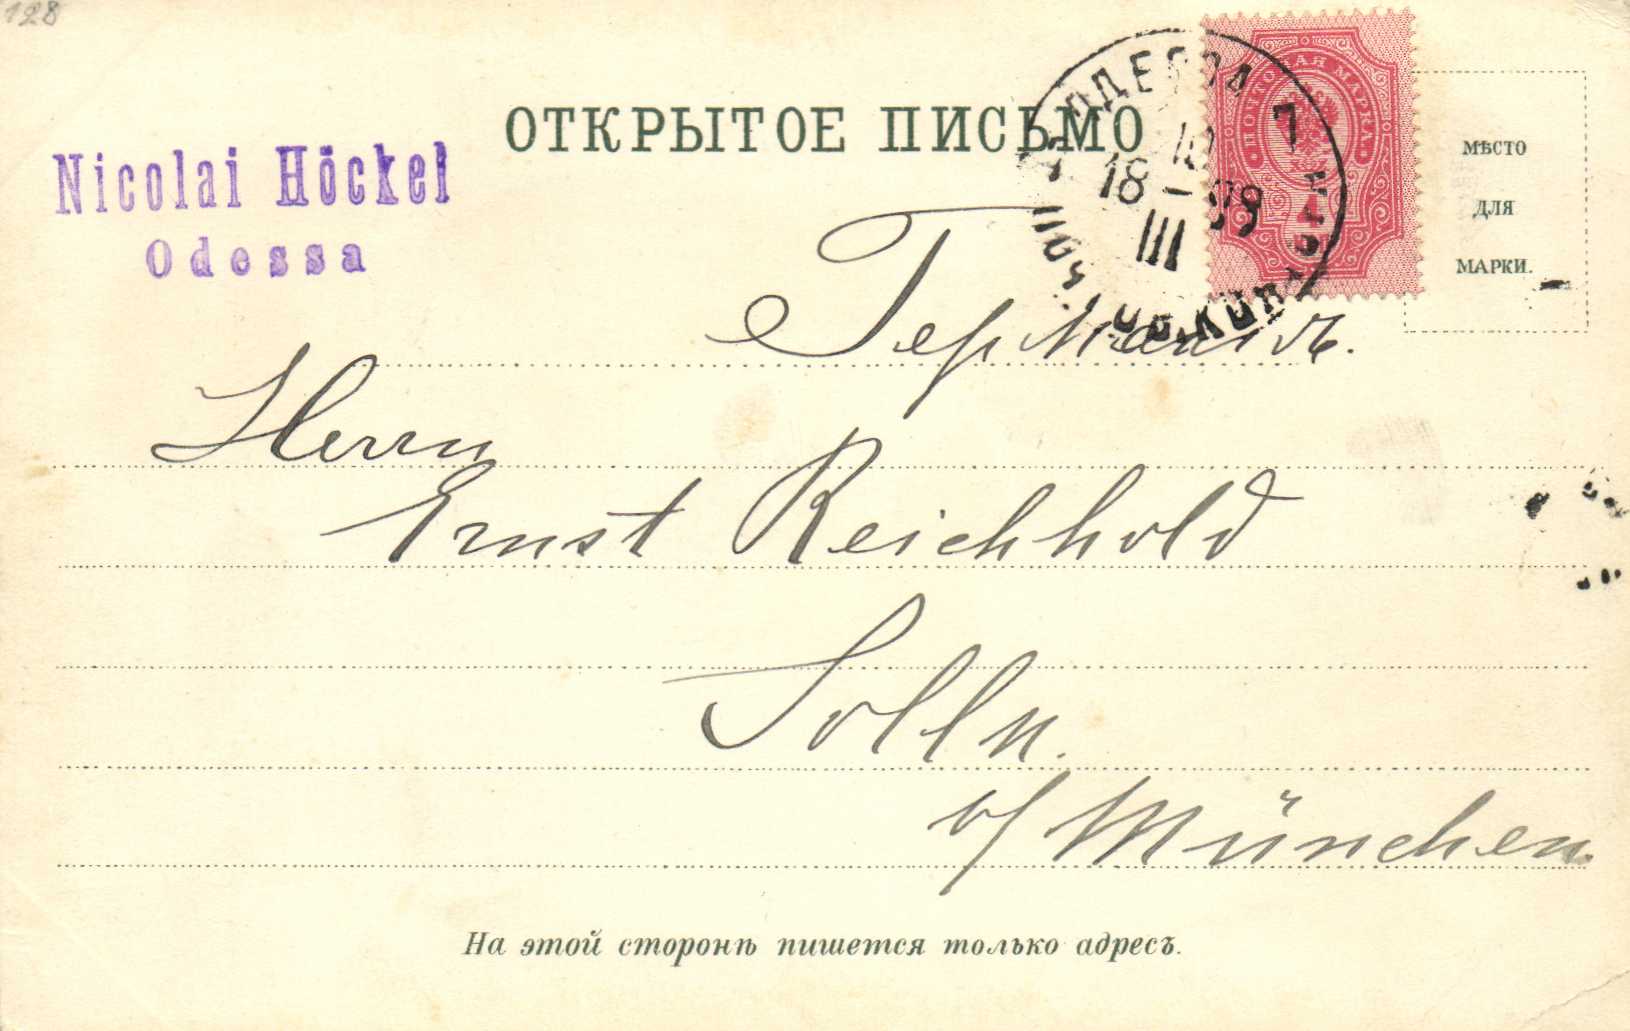 128
ОТКРЫТОЕ ПИСЬМО
Nicolai Höckel
Odessa
ОДЕССА 7
18 III
ПОЧТОВАЯ МАРКА
МѢСТО
ДЛЯ
МАРКИ.
Германія.
Herrn
Ernst Reichhold
Solln.
b/ München.
На этой сторонѣ пишется только адресъ.